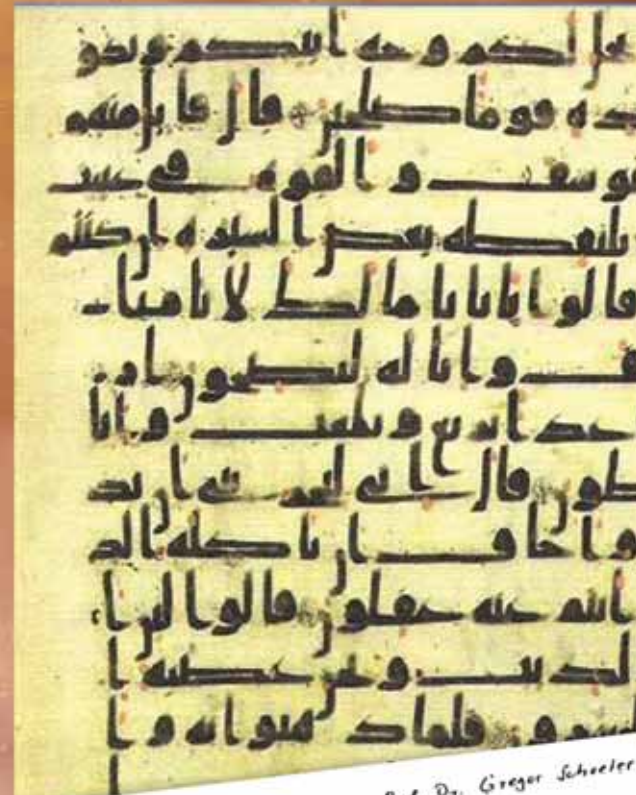 يخل لكم وجه ابيكم وتكو
قوما صلحين قال قايل منهم
وسف و القوه في غيبت
يلتقطه بعض السيره ان كنتم
قالوا يابانا ما لك لا تامنا
ف وانا له لنصحون ار
غدا يرتع ويلعب وانا
ظون قال اني ليحزنني ان تذ
واخاف ان ياكله الذ
انتم عنه غفلون قالوا لين ا
لذيب ونحن عصبه ا
لخسرون فلما ذهبوا به وا
Dr. Gregor Schoeler